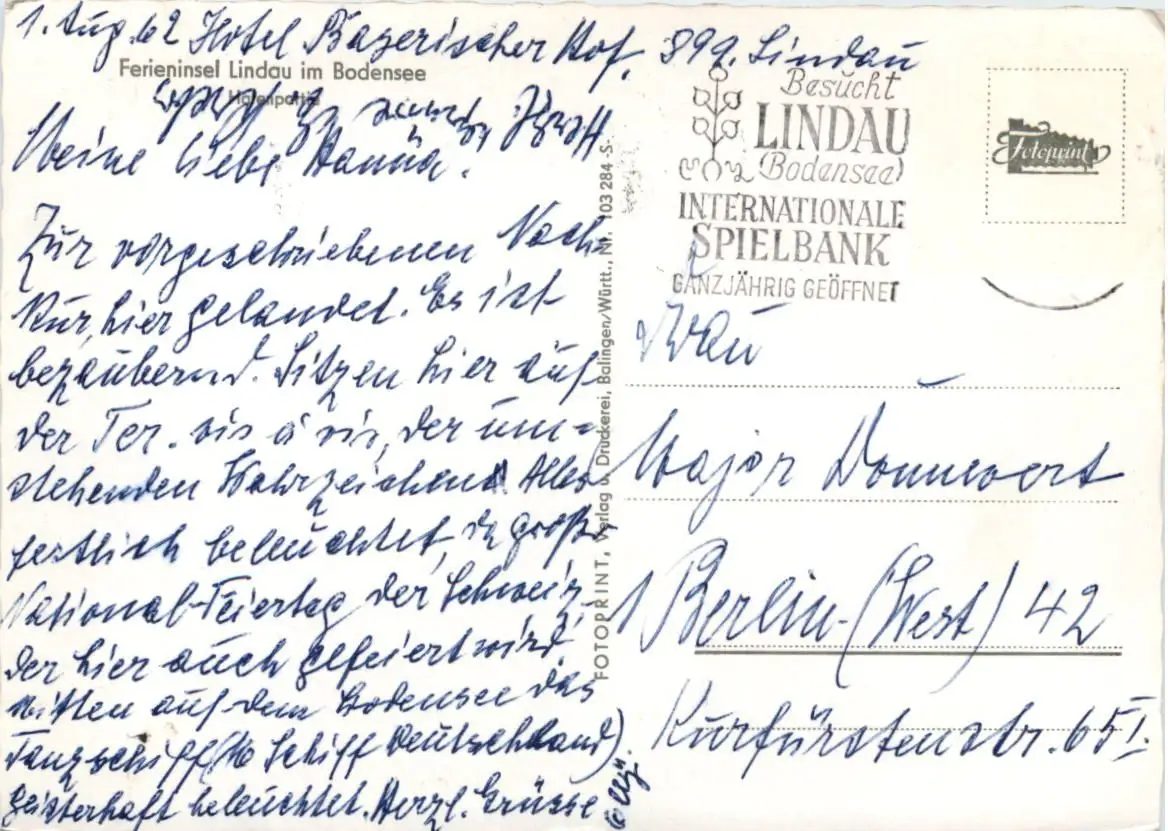 1. Aug. 62 Hotel Bayerischer Hof, 899. Lindau
Ferieninsel Lindau im Bodensee
Hafenpartie
Meine liebe Hanna.
Zur vorgeschriebenen Nach=
kur, hier gelandet. Es ist
bezaubernd. Sitzen hier auf
der Ter. vis á vis, der um=
stehenden Wahrzeichen. Alles
festlich beleuchtet, da großer
National-Feiertag der Schweiz,
der hier auch gefeiert wird.
Mitten auf dem Bodensee das
Tanzschiff (Schiff Deutschland)
geisterhaft beleuchtet. Herzl. Grüsse
FOTOPRINT, Verlag u. Druckerei, Balingen/Württ., Nr. 103 284 -S-
Besucht
LINDAU
(Bodensee)
INTERNATIONALE
SPIELBANK
GANZJÄHRIG GEÖFFNET
Fotoprint
Frau
Major Donnevert
1 Berlin-(West) 42
Kurfürstenstr. 65 I.